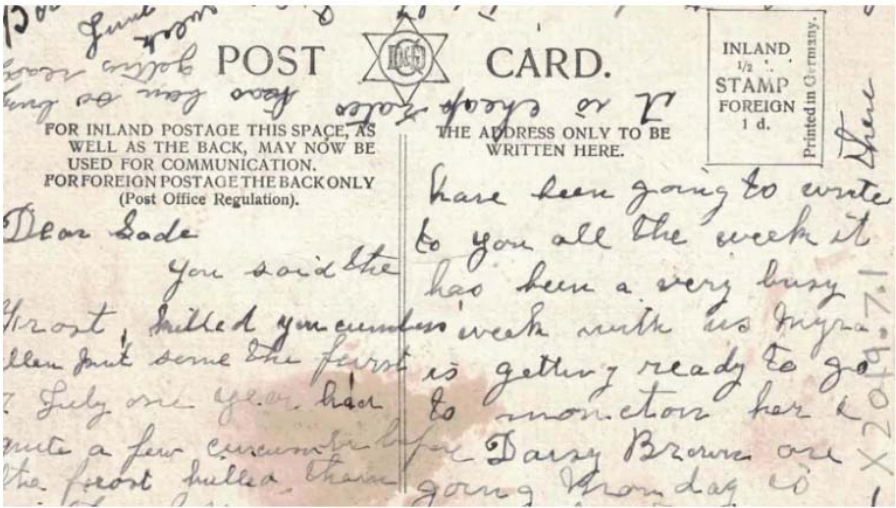 POST CARD.
INLAND
1/2
STAMP
FOREIGN
1 d.
Printed in Germany.
FOR INLAND POSTAGE THIS SPACE, AS
WELL AS THE BACK, MAY NOW BE
USED FOR COMMUNICATION.
FOR FOREIGN POSTAGE THE BACK ONLY
(Post Office Regulation).
THE ADDRESS ONLY TO BE
WRITTEN HERE.
it is cheap rates
has ben so busy
getting ready
week
Dear Sade
You said the
Frost killed your
put some the first
July one year had
quite a few before
the frost killed them
have been going to write
to you all the week it
has been a very busy
week with us Myra
is getting ready to go
to moncton her &
Daisy Brown are
going Monday
there
X2019.7.1